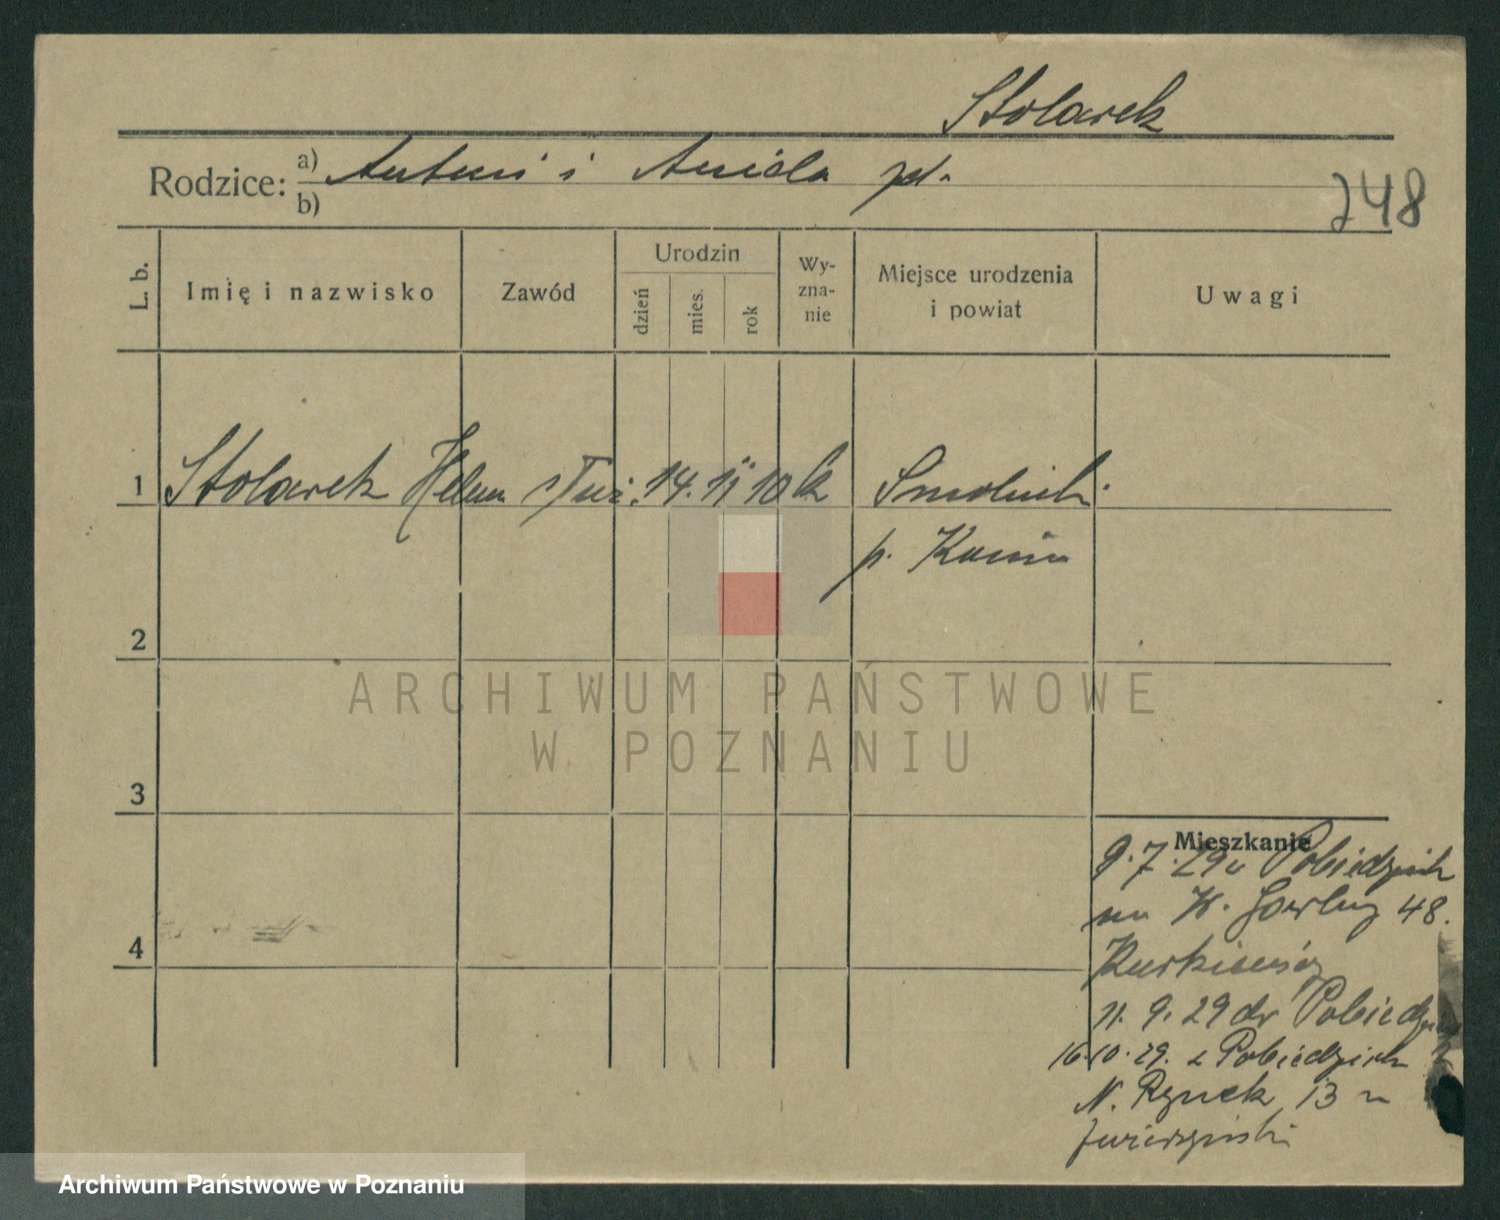 Stolarek
Rodzice: a) Antoni i Aniela
b)
248
L. b.
Imię i nazwisko
Zawód
Urodzin
dzień
mies.
rok
Wy-
zna-
nie
Miejsce urodzenia
i powiat
Uwagi
1 Stolarek Helena służ. 14. 11 10 k Smolniki
p. Konin
2
3
4
Mieszkanie
9.7.29 z Pobiedzisk
na 48.
11. 9. 29 do Pobiedzisk
16.10.29. z Pobiedzisk
N. Rynek 13 u
ARCHIWUM PAŃSTWOWE
W POZNANIU
Archiwum Państwowe w Poznaniu